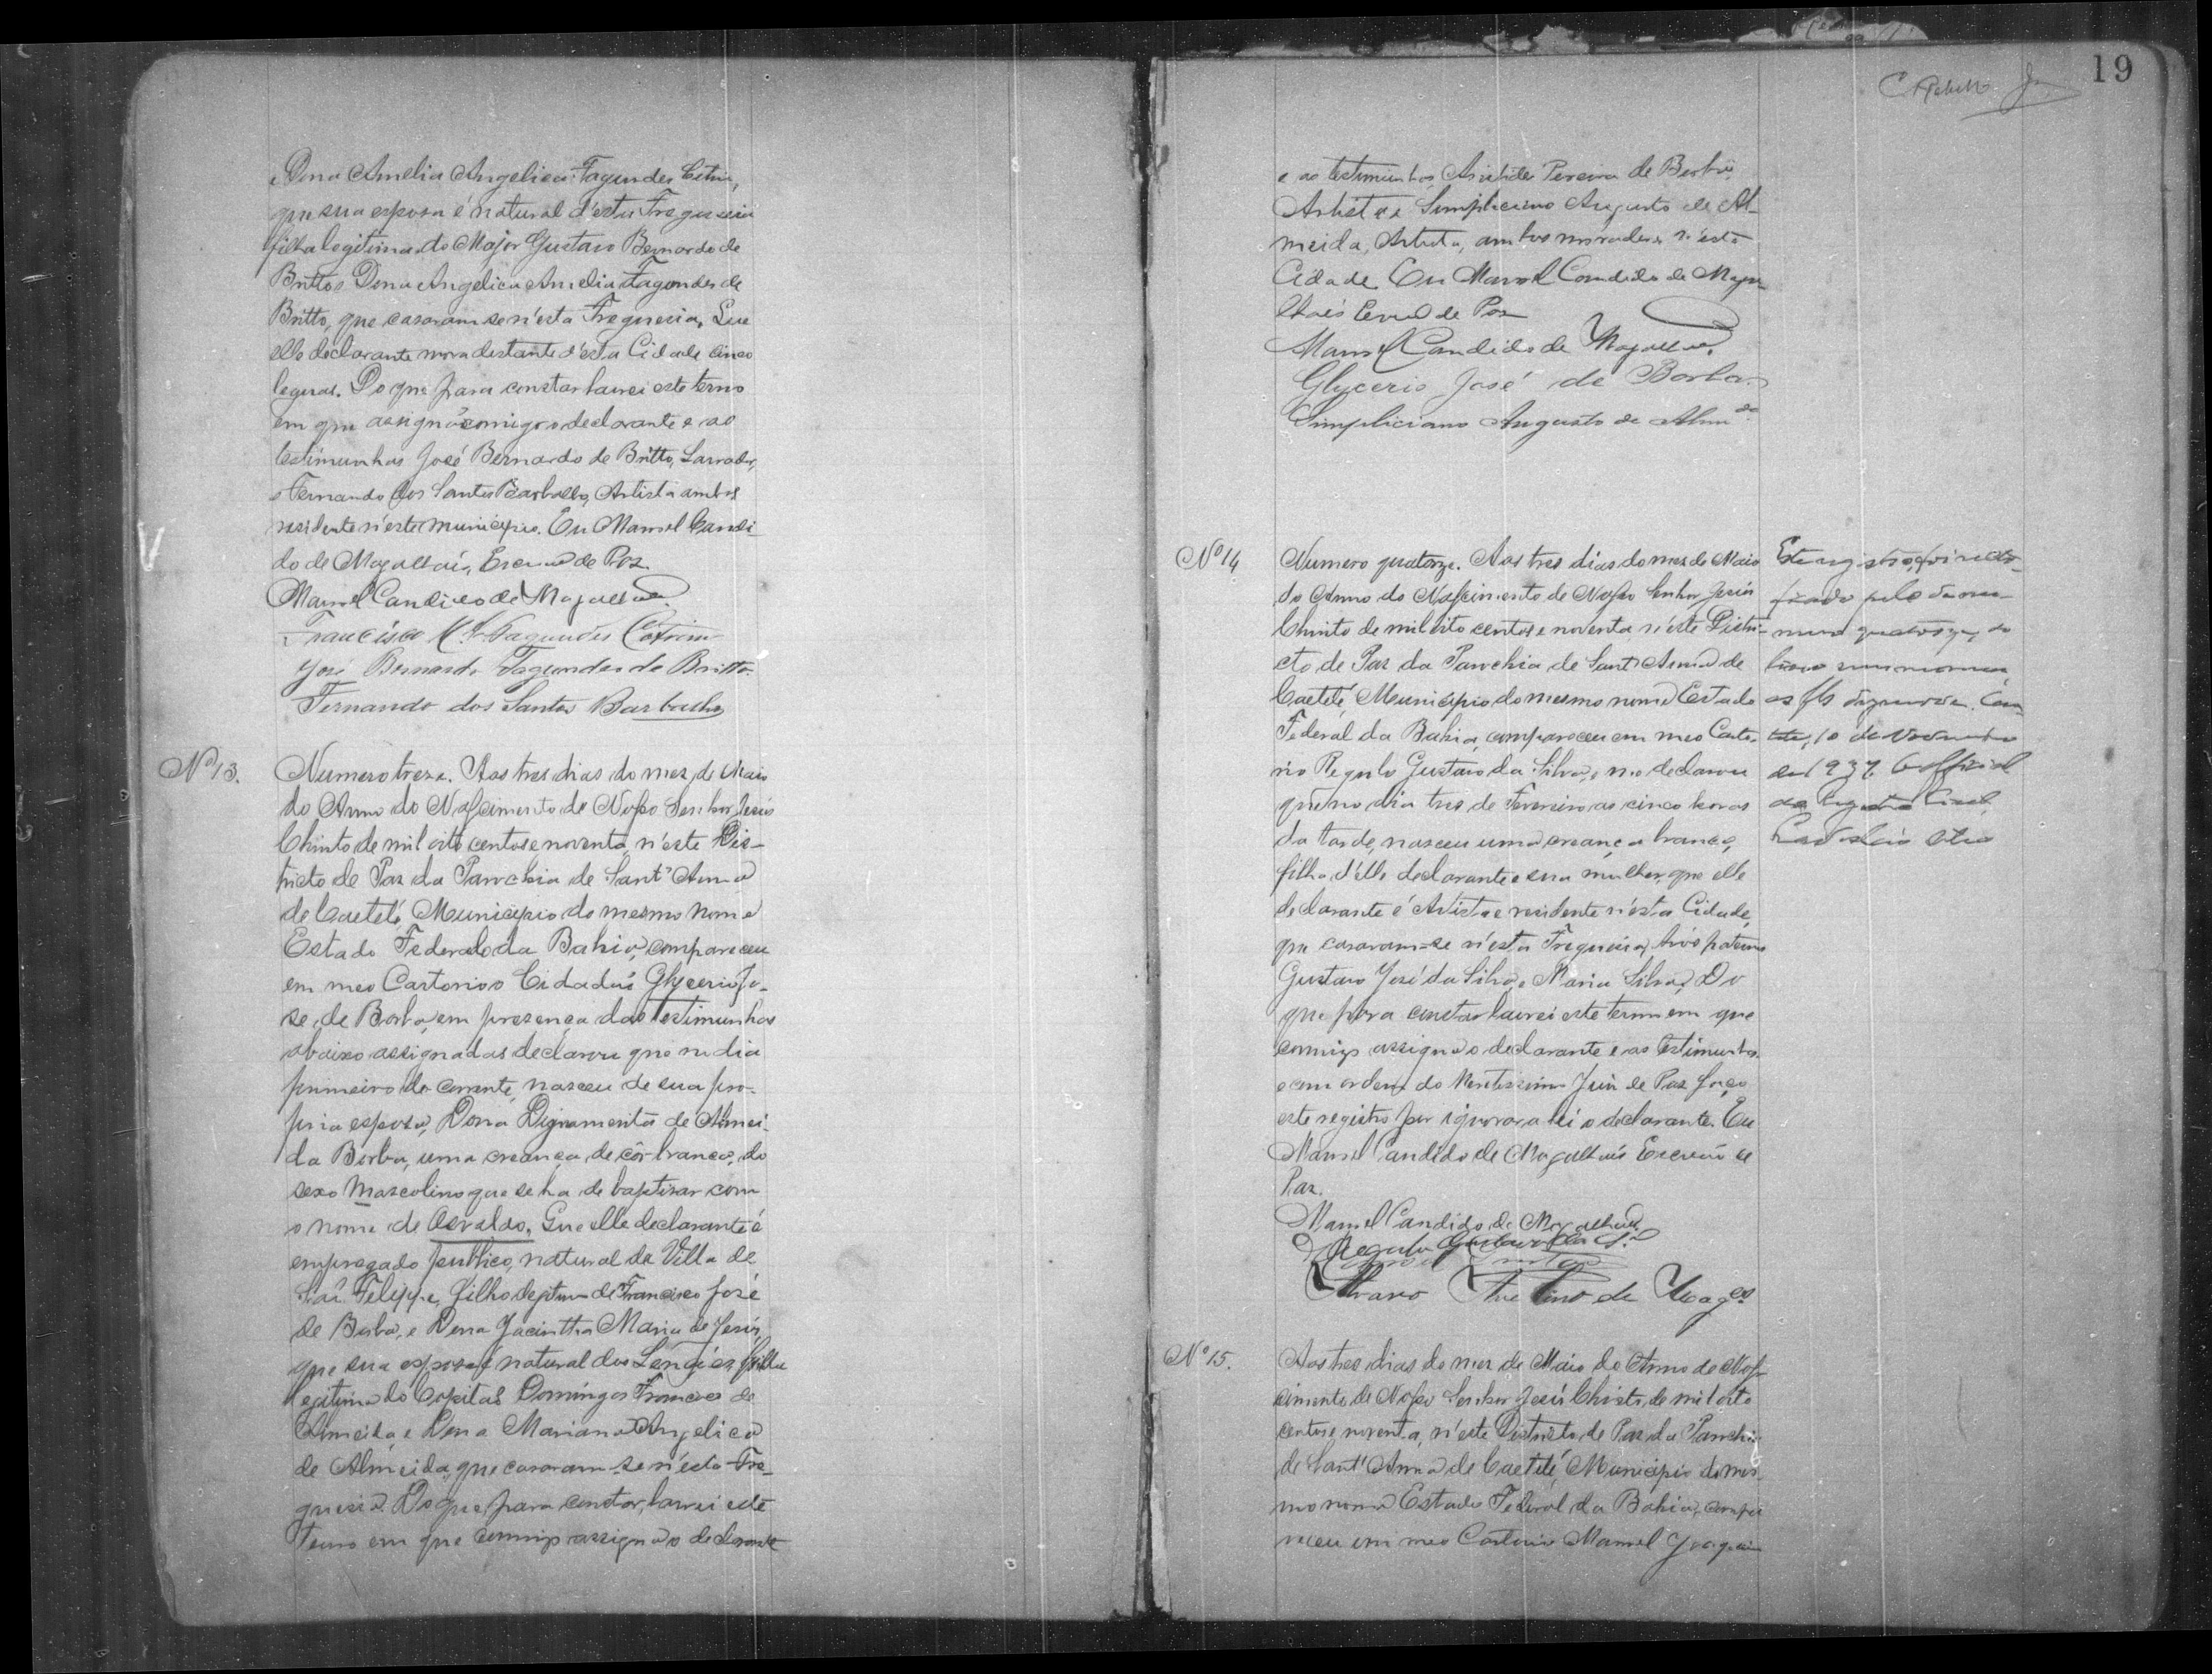 Dona Amelia Angelica Fagundes Cotrim,
que sua esposa é natural d'esta Freguesia
filha legitima do Major Gustavo Bernardo de
Britto e Dona Angelica Amelia Fagundes de
Britto, que casaram-se n'esta Freguesia, Que
elle declarante mora distante d'esta Cidade cinco
legoas. Do que para constar lavrei este termo
em que assigna comigo o declarante e as
testimunhas José Bernardo de Britto, Lavrador,
e Fernando dos Santos Barbalho, Artista ambos
residente n'este municipio. Eu Manoel Candi-
do de Magalhaes, Escrivão de Paz.
Manoel Candido de Magalhães
Francisco Fagundes Cotrim
José Bernardo Fagundes de Britto.
Fernando dos Santos Barbalho
Nº 13.
Numero treze. Aos tres dias do mez de Maio
do Anno do Nascimento de Nosso Senhor Jesus
Christo de mil oito centos e noventa, n'este Dis-
tricto de Paz da Parochia de Sant' Anna
de Caeteté, Municipio do mesmo nome
Estado Federal da Bahia, compareceu
em meo Cartorio o Cidadão Glycerio Jo-
se de Borba, em presença das testimunhas
abaixo assignadas declarou que no dia
primeiro do corrente, nasceu de sua pro-
pria esposa, Dona de Almei-
da Borba, uma creança de côr branca, do
sexo Mascolino que se ha de baptisar com
o nome de Osvaldo. Que elle declarante é
empregado publico, natural da Villa de
São Felippe, filho legitimo de Francisco José
de Borba, e Dona Jacintha Maria de Jesus,
que sua esposa é natural dos Lençóes, filha
legitima do Capitão Domingos Francisco de
Almeida e Dona Marianna Angelica
de Almeida, que casaram-se n'esta Fre-
guesia. Do que, para constar, lavrei este
termo em que comigo assigna o declarante
19
e as testimunhas Aristides Pereira de Borba,
Artista e Simpliciano Augusto de Al-
meida, Artista, ambos moradores n'esta
Cidade. Eu Manoel Candido de Maga-
lhães Escrivão de Paz
Manoel Candido de Magalhães.
Glycerio José de Borba.
Simpliciano Augusto de Almda
Nº 14
Numero quatorze. Aos tres dias do mez de Maio
do Anno do Nascimento de Nosso Senhor Jesus
Christo de mil oito centos e noventa n'este Distri-
cto de Paz da Parochia de Sant' Anna de
Caeteté, Municipio do mesmo nome Estado
Federal da Bahia, compareceu em meo Carto-
rio Regulo Gustavo da Silva, e me declarou
que no dia tres de Fevereiro as cinco horas
da tarde, nasceu uma creança branca,
filha d'elle declarante e sua mulher, que elle
declarante é Artista e residente n'esta Cidade,
que casaram-se n'esta Freguesia, Avós paternos
Gustavo José da Silva, e Maria Silva, Do
que para constar lavrei este termo em que
comigo assigna o declarante e as testimunhas
e com ordem do Meritissimo Juiz de Paz faço
este registro por ignorar a lei o declarante. Eu
Manoel Candido de Magalhães Escrivão de
Paz.
Manoel Candido de Magalhães
Regulo Gustavo da Sa
Alvaro de Mages
Este registro foi recti-
ficado pelo de nu-
mero quatorze, do
livro numero
as fls dezenove. Cae-
tité, 10 de Novembro
de 1937. O official
do Registro Civil,
Nº 15.
Aos tres dias do mez de Maio do Anno do Nas-
cimento de Nosso Senhor Jesus Christo de mil oito
centos e noventa, n'este Districto de Paz da Parochia
de Sant' Anna de Caeteté, Municipio do mes-
mo nome Estado Federal da Bahia, compa-
receu em meo Cartorio Manoel Joaquim